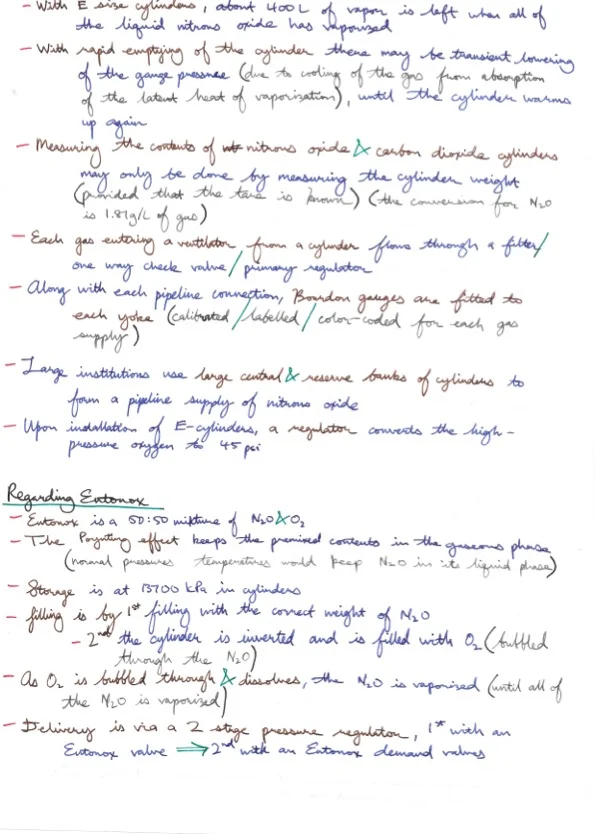 - With E size cylinders, about 400L of vapor is left when all of
the liquid nitrous oxide has vaporized
- With rapid emptying of the cylinder there may be transient lowering
of the gauge pressure (due to cooling of the gas from absorption
of the latent heat of vaporization), until the cylinder warms
up again
- Measuring the contents of nitrous oxide & carbon dioxide cylinders
may only be done by measuring the cylinder weight
(provided that the tare is known) (the conversion for N2O
is 1.81g/L of gas)
- Each gas entering a ventilator from a cylinder flows through a filter/
one way check valve/primary regulator
- Along with each pipeline connection, Bourdon gauges are fitted to
each yoke (calibrated/labelled/color-coded for each gas
supply)
- Large institutions use large central & reserve banks of cylinders to
form a pipeline supply of nitrous oxide
- Upon installation of E-cylinders, a regulator converts the high-
pressure oxygen to 45 psi
Regarding Entonox
- Entonox is a 50:50 mixture of N2O & O2
- The Poynting effect keeps the premixed contents in the gaseous phase
(normal pressures temperatures would keep N2O in its liquid phase)
- Storage is at 13700 kPa in cylinders
- filling is by 1st filling with the correct weight of N2O
- 2nd the cylinder is inverted and is filled with O2 (bubbled
through the N2O)
- As O2 is bubbled through & dissolves, the N2O is vaporized (until all of
the N2O is vaporized)
- Delivery is via a 2 stage pressure regulator, 1st with an
Entonox valve ⟹ 2nd with an Entonox demand valves